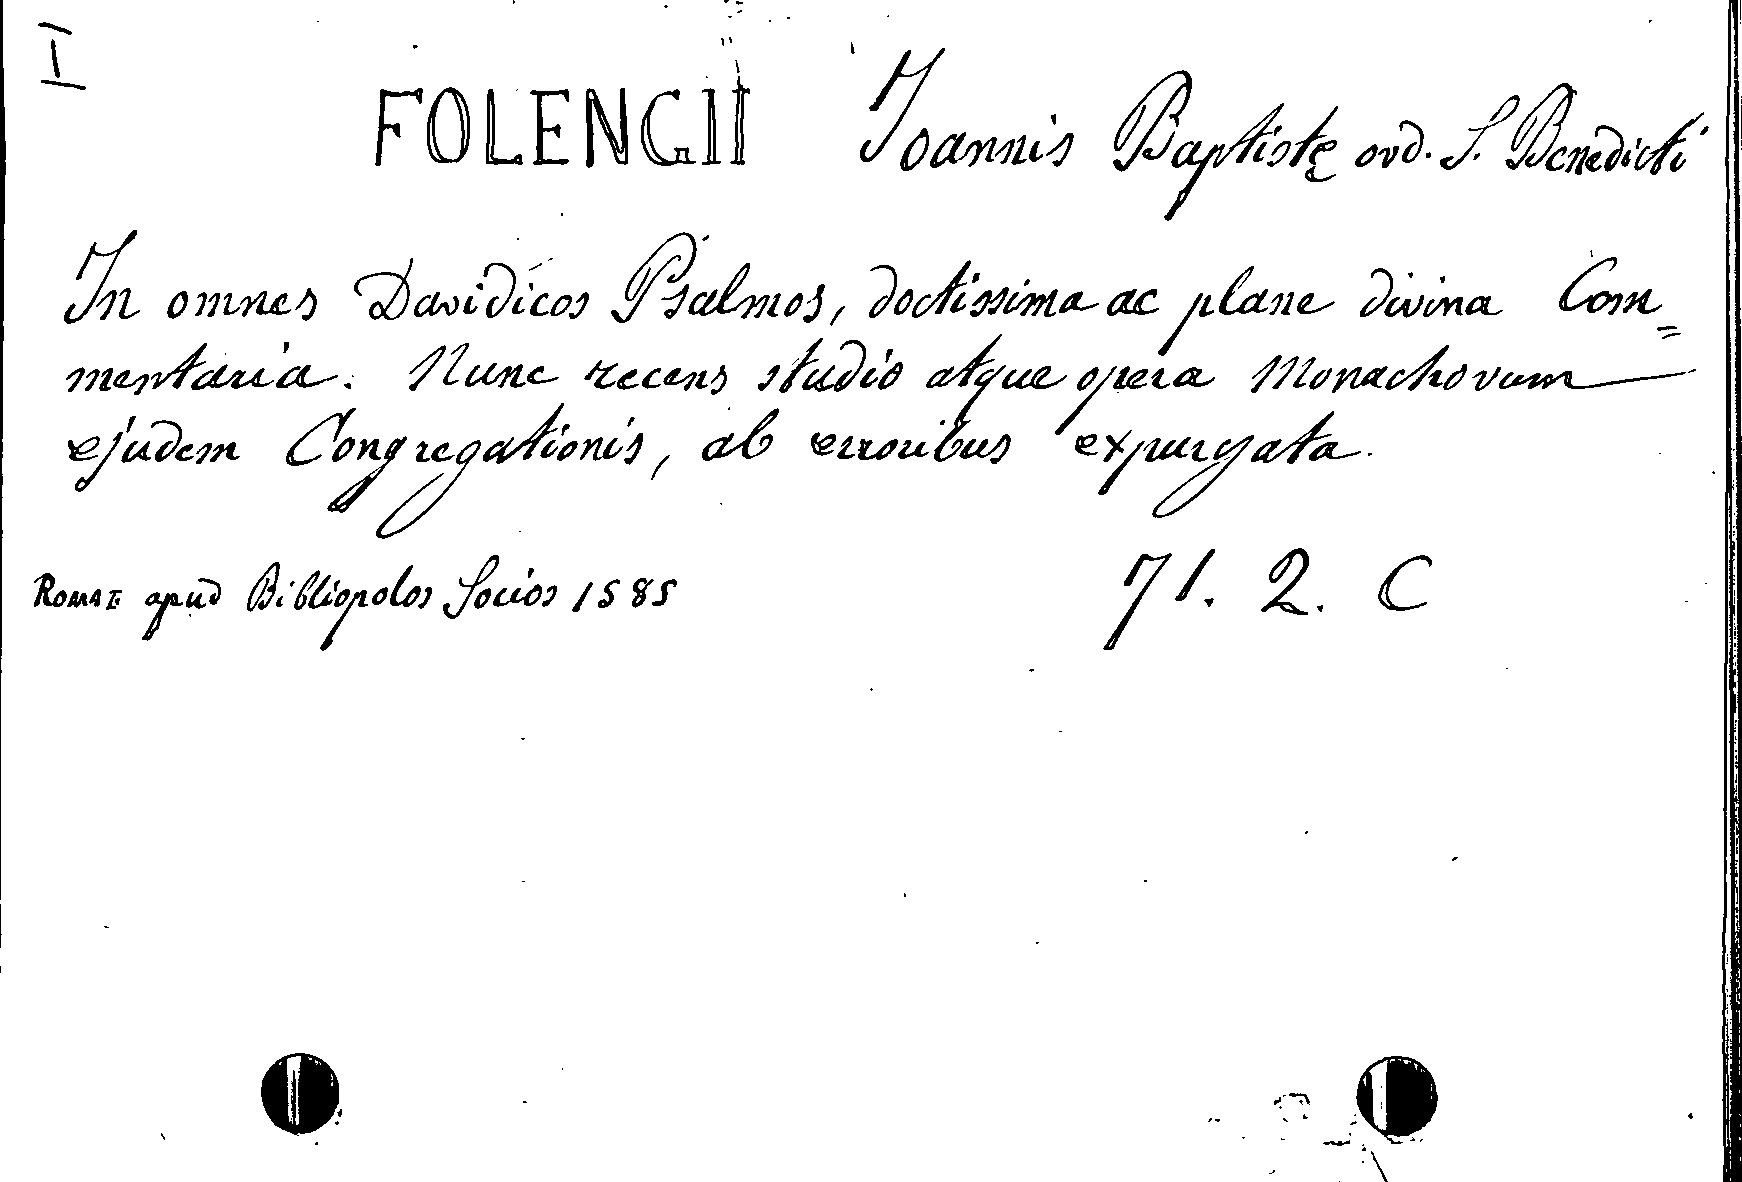 I
FOLENGII Joannis Baptistę ord. S. Benedicti
In omnes Davidicos Psalmos, doctissima ac plane divina Com=
mentaria. Nunc recens studio atque opera Monachorum
ejudem Congregationis, ab erroribus expurgata.
ROMAE apud Bibliopolos Socios 1585
71. 2. C